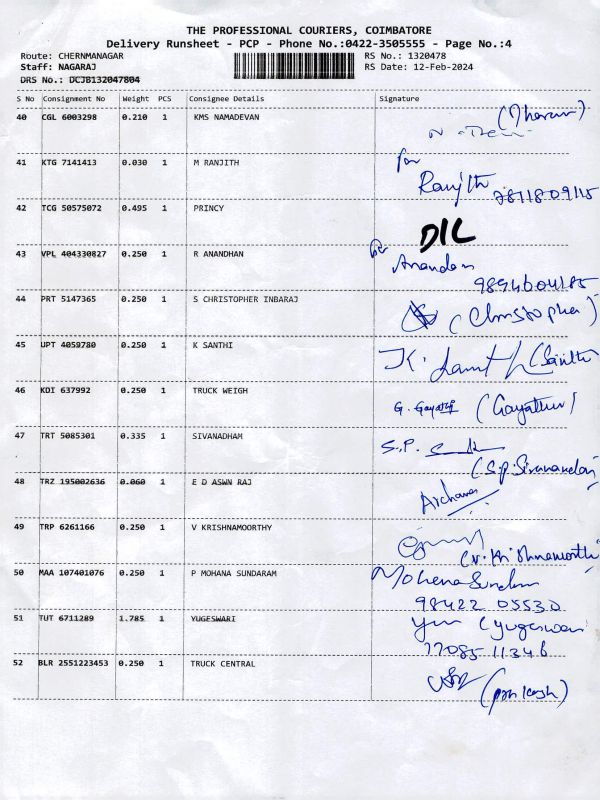 THE PROFESSIONAL COURIERS, COIMBATORE
Delivery Runsheet - PCP - Phone No.:0422-3505555 - Page No.:4
Route: CHERNMANAGAR RS No.: 1320478
Staff: NAGARAJ RS Date: 12-Feb-2024
DRS No.: DCJB132047804
S No Consignment No Weight PCS Consignee Details Signature
40 CGL 6003298 0.210 1 KMS NAMADEVAN
41 KTG 7141413 0.030 1 M RANJITH for
Ranjith
42 TCG 50575072 0.495 1 PRINCY
DIL
43 VPL 404330827 0.250 1 R ANANDHAN for
Anandan
9894604185
44 PRT 5147365 0.250 1 S CHRISTOPHER INBARAJ (Christopher)
45 UPT 4059780 0.250 1 K SANTHI
46 KDI 637992 0.250 1 TRUCK WEIGH G. Gayatri
47 TRT 5085301 0.335 1 SIVANADHAM S.P.
48 TRZ 195002636 0.060 1 E D ASWN RAJ Archana
49 TRP 6261166 0.250 1 V KRISHNAMOORTHY
50 MAA 107401076 0.250 1 P MOHANA SUNDARAM Mohana Sundaram
98422 05530
51 TUT 6711289 1.785 1 YUGESWARI (yugeswari
77085 11346
52 BLR 2551223453 0.250 1 TRUCK CENTRAL (prakash)